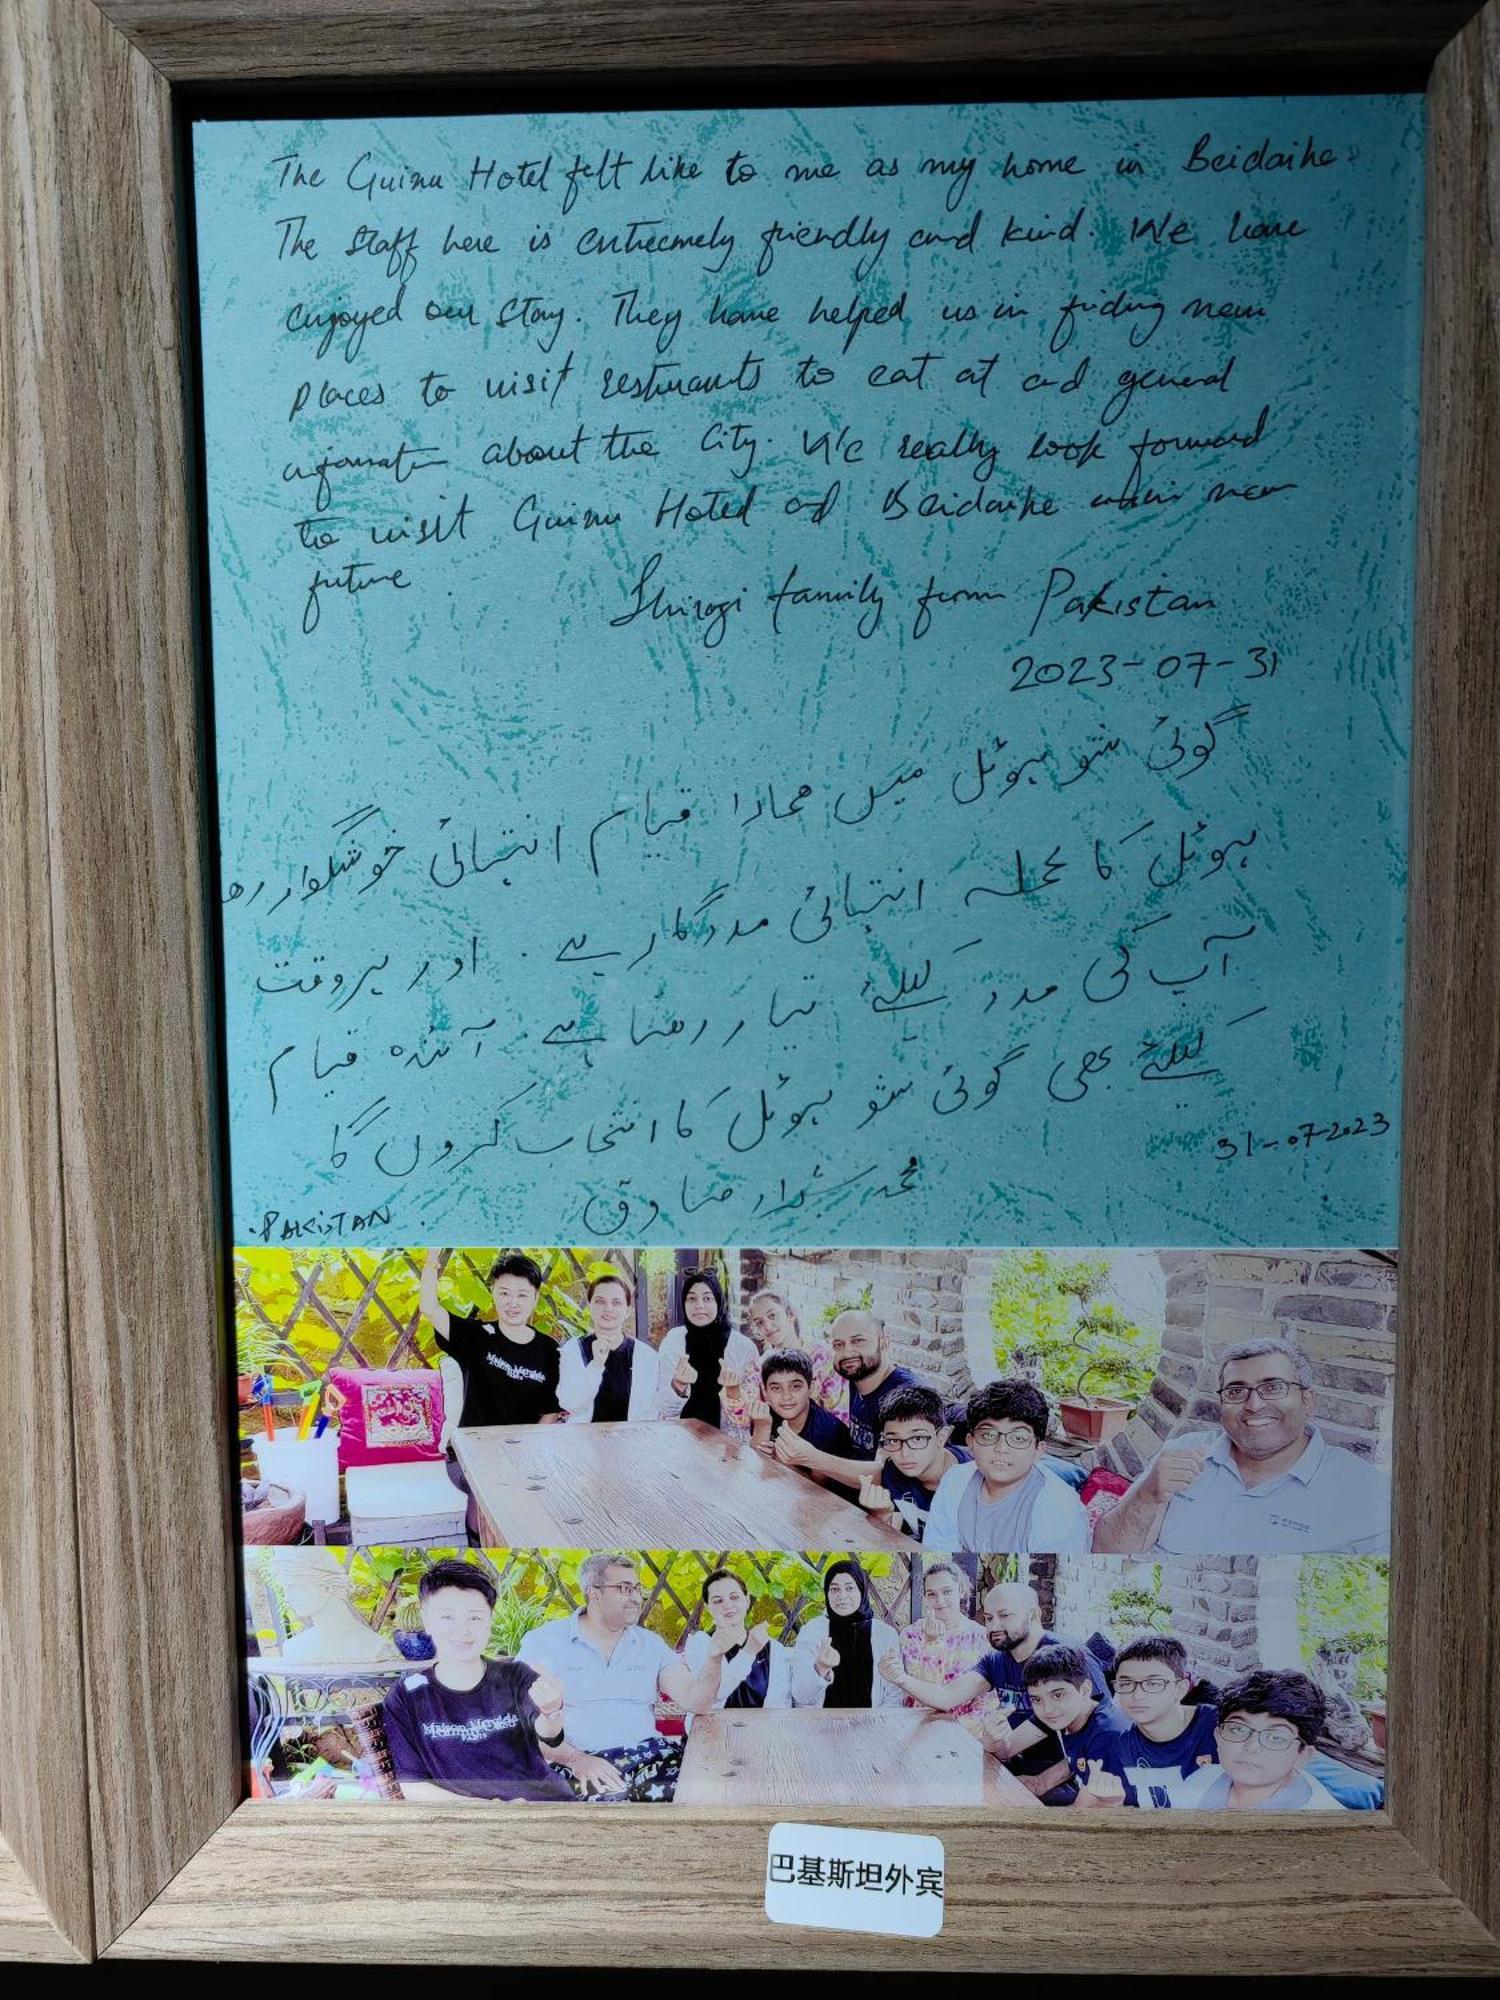 The Guinu Hotel felt like to me as my home in Beidaihe.
The Staff here is extremely friendly and kind. We have
enjoyed our stay. They have helped us in finding new
places to visit resturants to eat at and general
information about the City. We really look forward
to visit Guinu Hotel and Beidaihe in near
future
family from Pakistan
2023-07-31
گوئی شو ہوٹل میں ہمارا قیام انتہائی خوشگوار رہا
ہوٹل کا عملہ انتہائی مددگار ہے۔ اور ہر وقت
آپ کی مدد کیلئے تیار رہتا ہے۔ آئندہ قیام
کیلئے بھی گوئی شو ہوٹل کا انتخاب کروں گا
31-07-2023
محمد صادق
PAKISTAN
巴基斯坦外宾